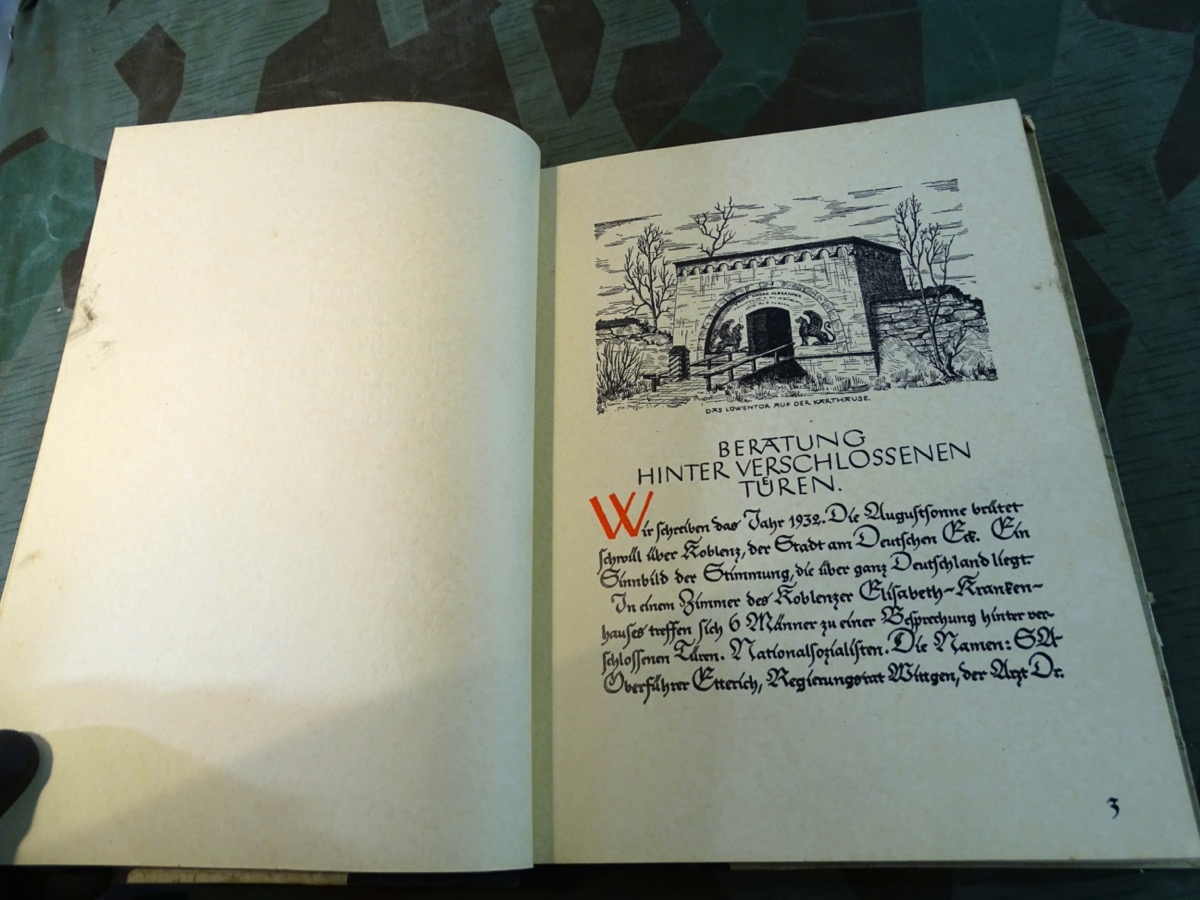 DAS LÖWENTOR AUF DER KARTHAUSE.
BERATUNG
HINTER VERSCHLOSSENEN
TÜREN.
Wir schreiben das Jahr 1932. Die Augustsonne brütet
schwül über Koblenz, der Stadt am Deutschen Eck. Ein
Sinnbild der Stimmung, die über ganz Deutschland liegt.
In einem Zimmer des Koblenzer Elisabeth-Kranken-
hauses treffen sich 6 Männer zu einer Besprechung hinter ver-
schlossenen Türen. Nationalsozialisten. Die Namen: SA-
Oberführer Etterich, Regierungsrat Wittgen, der Arzt Dr.
3